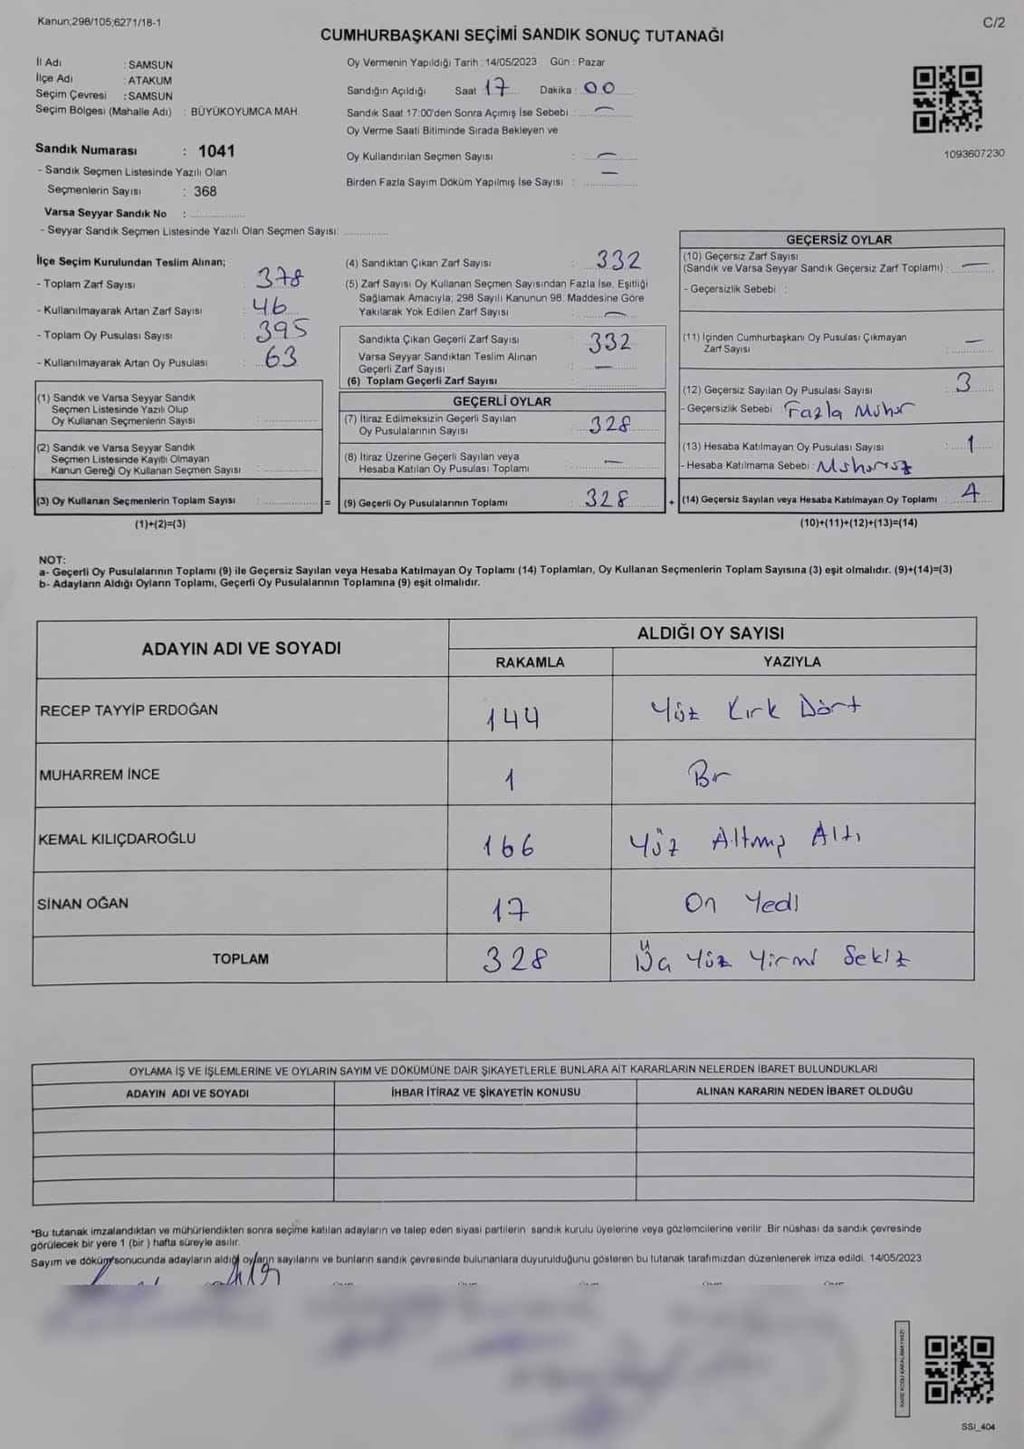 Kanun;298/105;6271/18-1
C/2
CUMHURBAŞKANI SEÇİMİ SANDIK SONUÇ TUTANAĞI
İl Adı : SAMSUN
İlçe Adı : ATAKUM
Seçim Çevresi : SAMSUN
Seçim Bölgesi (Mahalle Adı) : BÜYÜKOYUMCA MAH.
Sandık Numarası : 1041
- Sandık Seçmen Listesinde Yazılı Olan
Seçmenlerin Sayısı : 368
Varsa Seyyar Sandık No :
- Seyyar Sandık Seçmen Listesinde Yazılı Olan Seçmen Sayısı:
Oy Vermenin Yapıldığı Tarih : 14/05/2023 Gün : Pazar
Sandığın Açıldığı Saat 17 Dakika : 00
Sandık Saat 17:00'den Sonra Açımış İse Sebebi : —
Oy Verme Saati Bitiminde Sırada Bekleyen ve
Oy Kullandırılan Seçmen Sayısı : —
Birden Fazla Sayım Döküm Yapılmış İse Sayısı : —
1093607230
İlçe Seçim Kurulundan Teslim Alınan;
- Toplam Zarf Sayısı : 378
- Kullanılmayarak Artan Zarf Sayısı : 46
- Toplam Oy Pusulası Sayısı : 395
- Kullanılmayarak Artan Oy Pusulası : 63
(1) Sandık ve Varsa Seyyar Sandık
Seçmen Listesinde Yazılı Olup
Oy Kullanan Seçmenlerin Sayısı :
(2) Sandık ve Varsa Seyyar Sandık
Seçmen Listesinde Kayıtlı Olmayan
Kanun Gereği Oy Kullanan Seçmen Sayısı :
(3) Oy Kullanan Seçmenlerin Toplam Sayısı :
(1)+(2)=(3)
(4) Sandıktan Çıkan Zarf Sayısı : 332
(5) Zarf Sayısı Oy Kullanan Seçmen Sayısından Fazla İse, Eşitliği
Sağlamak Amacıyla; 298 Sayılı Kanunun 98. Maddesine Göre
Yakılarak Yok Edilen Zarf Sayısı : —
Sandıkta Çıkan Geçerli Zarf Sayısı : 332
Varsa Seyyar Sandıktan Teslim Alınan
Geçerli Zarf Sayısı : —
(6) Toplam Geçerli Zarf Sayısı :
GEÇERLİ OYLAR
(7) İtiraz Edilmeksizin Geçerli Sayılan
Oy Pusulalarının Sayısı : 328
(8) İtiraz Üzerine Geçerli Sayılan veya
Hesaba Katılan Oy Pusulası Toplamı : —
= (9) Geçerli Oy Pusulalarının Toplamı : 328
GEÇERSİZ OYLAR
(10) Geçersiz Zarf Sayısı
(Sandık ve Varsa Seyyar Sandık Geçersiz Zarf Toplamı) : —
- Geçersizlik Sebebi :
(11) İçinden Cumhurbaşkanı Oy Pusulası Çıkmayan
Zarf Sayısı : —
(12) Geçersiz Sayılan Oy Pusulası Sayısı : 3
- Geçersizlik Sebebi : Fazla Mühür
(13) Hesaba Katılmayan Oy Pusulası Sayısı : 1
- Hesaba Katılmama Sebebi : Mühürsüz
+ (14) Geçersiz Sayılan veya Hesaba Katılmayan Oy Toplamı : 4
(10)+(11)+(12)+(13)=(14)
NOT:
a- Geçerli Oy Pusulalarının Toplamı (9) ile Geçersiz Sayılan veya Hesaba Katılmayan Oy Toplamı (14) Toplamları, Oy Kullanan Seçmenlerin Toplam Sayısına (3) eşit olmalıdır. (9)+(14)=(3)
b- Adayların Aldığı Oyların Toplamı, Geçerli Oy Pusulalarının Toplamına (9) eşit olmalıdır.
ADAYIN ADI VE SOYADI
ALDIĞI OY SAYISI
RAKAMLA YAZIYLA
RECEP TAYYİP ERDOĞAN 144 Yüz Kırk Dört
MUHARREM İNCE 1 Bir
KEMAL KILIÇDAROĞLU 166 Yüz Altmış Altı
SİNAN OĞAN 17 On Yedi
TOPLAM 328 Üç Yüz Yirmi Sekiz
OYLAMA İŞ VE İŞLEMLERİNE VE OYLARIN SAYIM VE DÖKÜMÜNE DAİR ŞİKAYETLERLE BUNLARA AİT KARARLARIN NELERDEN İBARET BULUNDUKLARI
ADAYIN ADI VE SOYADI İHBAR İTİRAZ VE ŞİKAYETİN KONUSU ALINAN KARARIN NEDEN İBARET OLDUĞU
*Bu tutanak imzalandıktan ve mühürlendikten sonra seçime katılan adayların ve talep eden siyasi partilerin sandık kurulu üyelerine veya gözlemcilerine verilir. Bir nüshası da sandık çevresinde
görülecek bir yere 1 (bir ) hafta süreyle asılır.
Sayım ve döküm sonucunda adayların aldığı oyların sayılarını ve bunların sandık çevresinde bulunanlara duyurulduğunu gösteren bu tutanak tarafımızdan düzenlenerek imza edildi. 14/05/2023
SSI_404